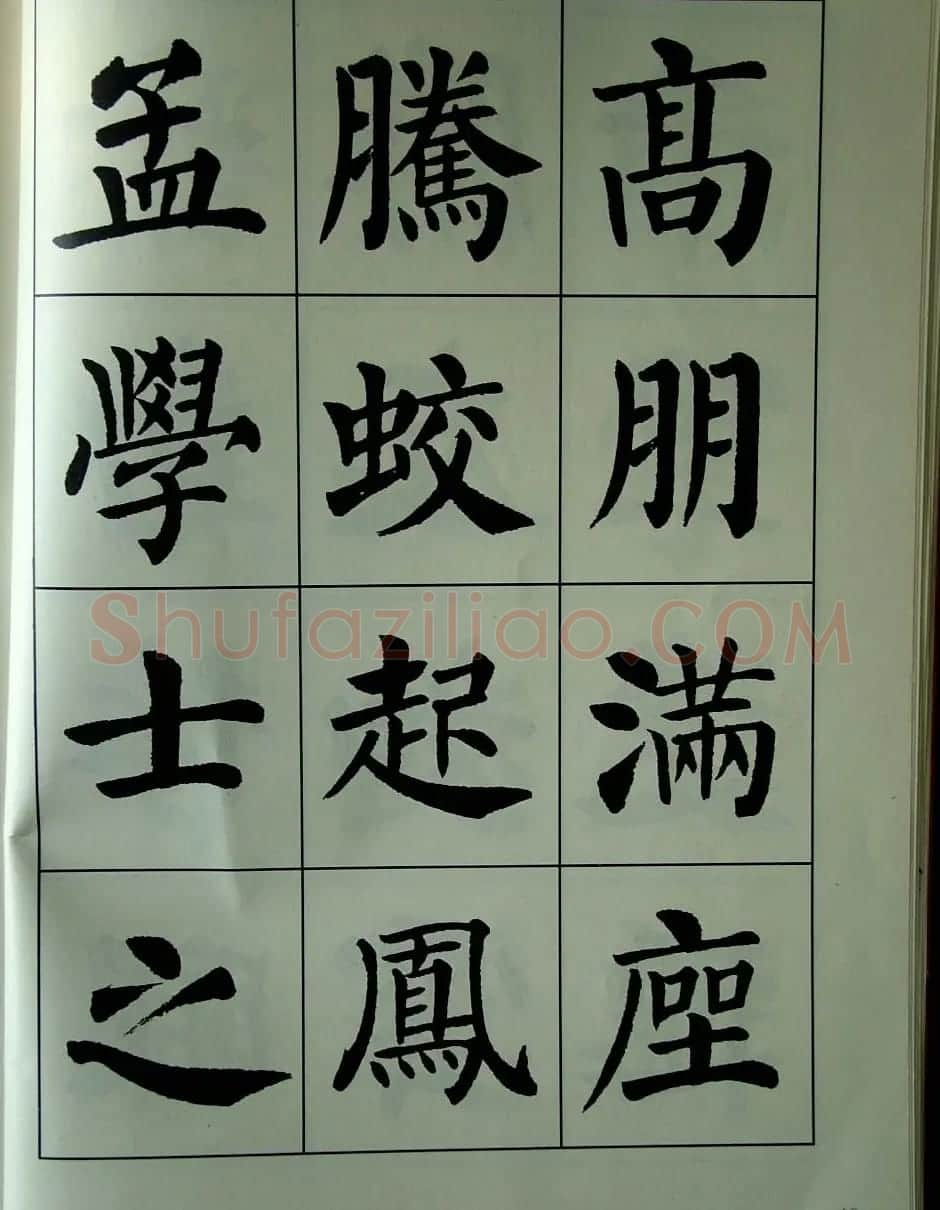 髙朋滿座
騰蛟起鳳
孟學士之
Shufaziliao.COM